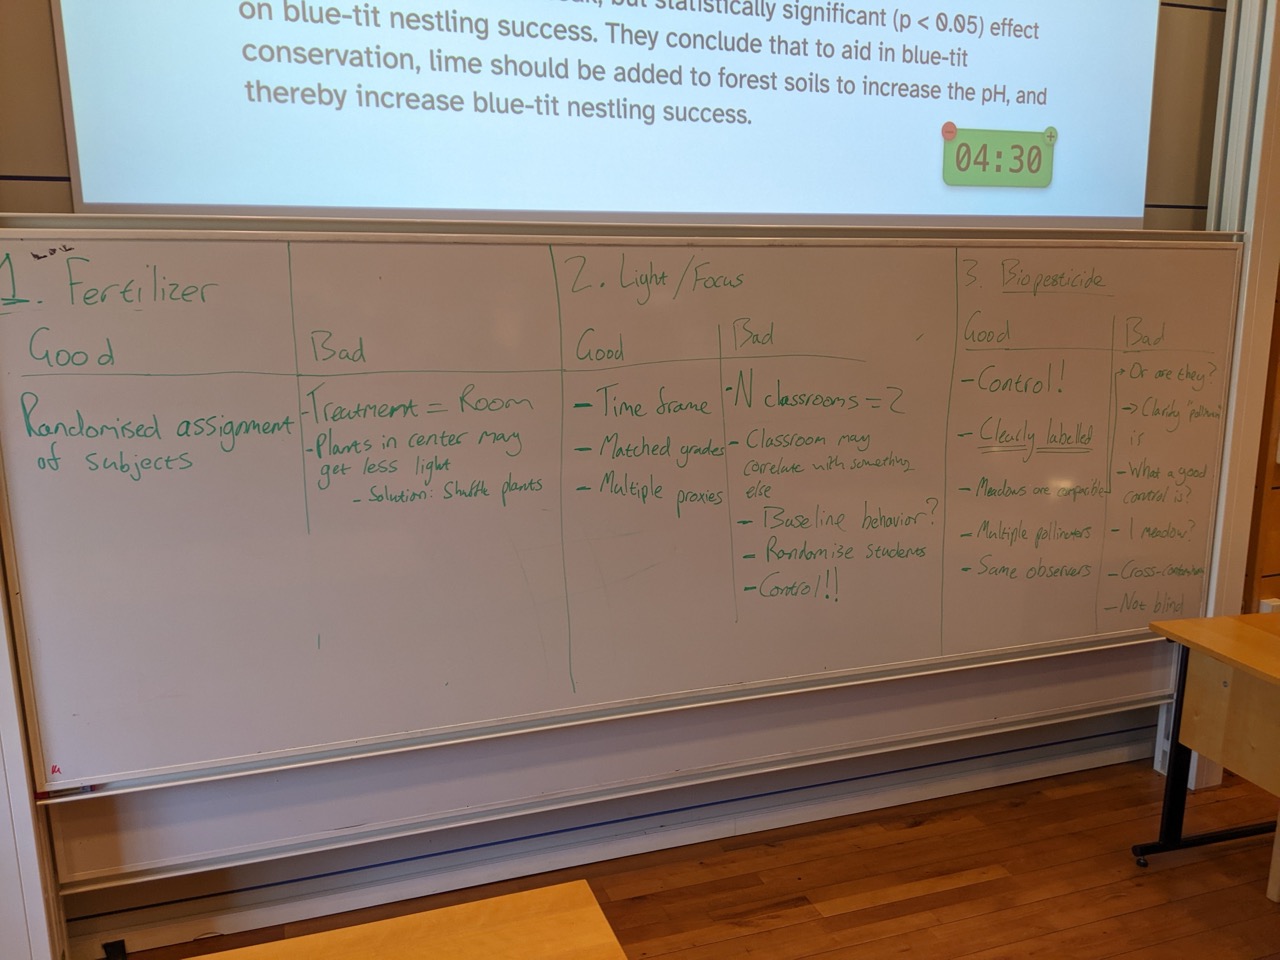 but statistically significant (p < 0.05) effect
on blue-tit nestling success. They conclude that to aid in blue-tit
conservation, lime should be added to forest soils to increase the pH, and
thereby increase blue-tit nestling success.
04:30
1. Fertilizer
Good
Randomised assignment
of subjects
Bad
- Treatment = Room
- Plants in center may
get less light
- Solution: Shuffle plants
2. Light/Focus
Good
- Time frame
- Matched grades
- Multiple proxies
Bad
- N classrooms = 2
- Classroom may
correlate with something
else
- Baseline behavior?
- Randomise students
- Control!!
3. Biopesticide
Good
- Control!
- Clearly labelled
- Meadows are compatible
- Multiple pollinators
- Same observers
Bad
→ Or are they?
→ Clarify
is
- What a good
control is?
- 1 meadow?
- Cross-contamination
- Not blind